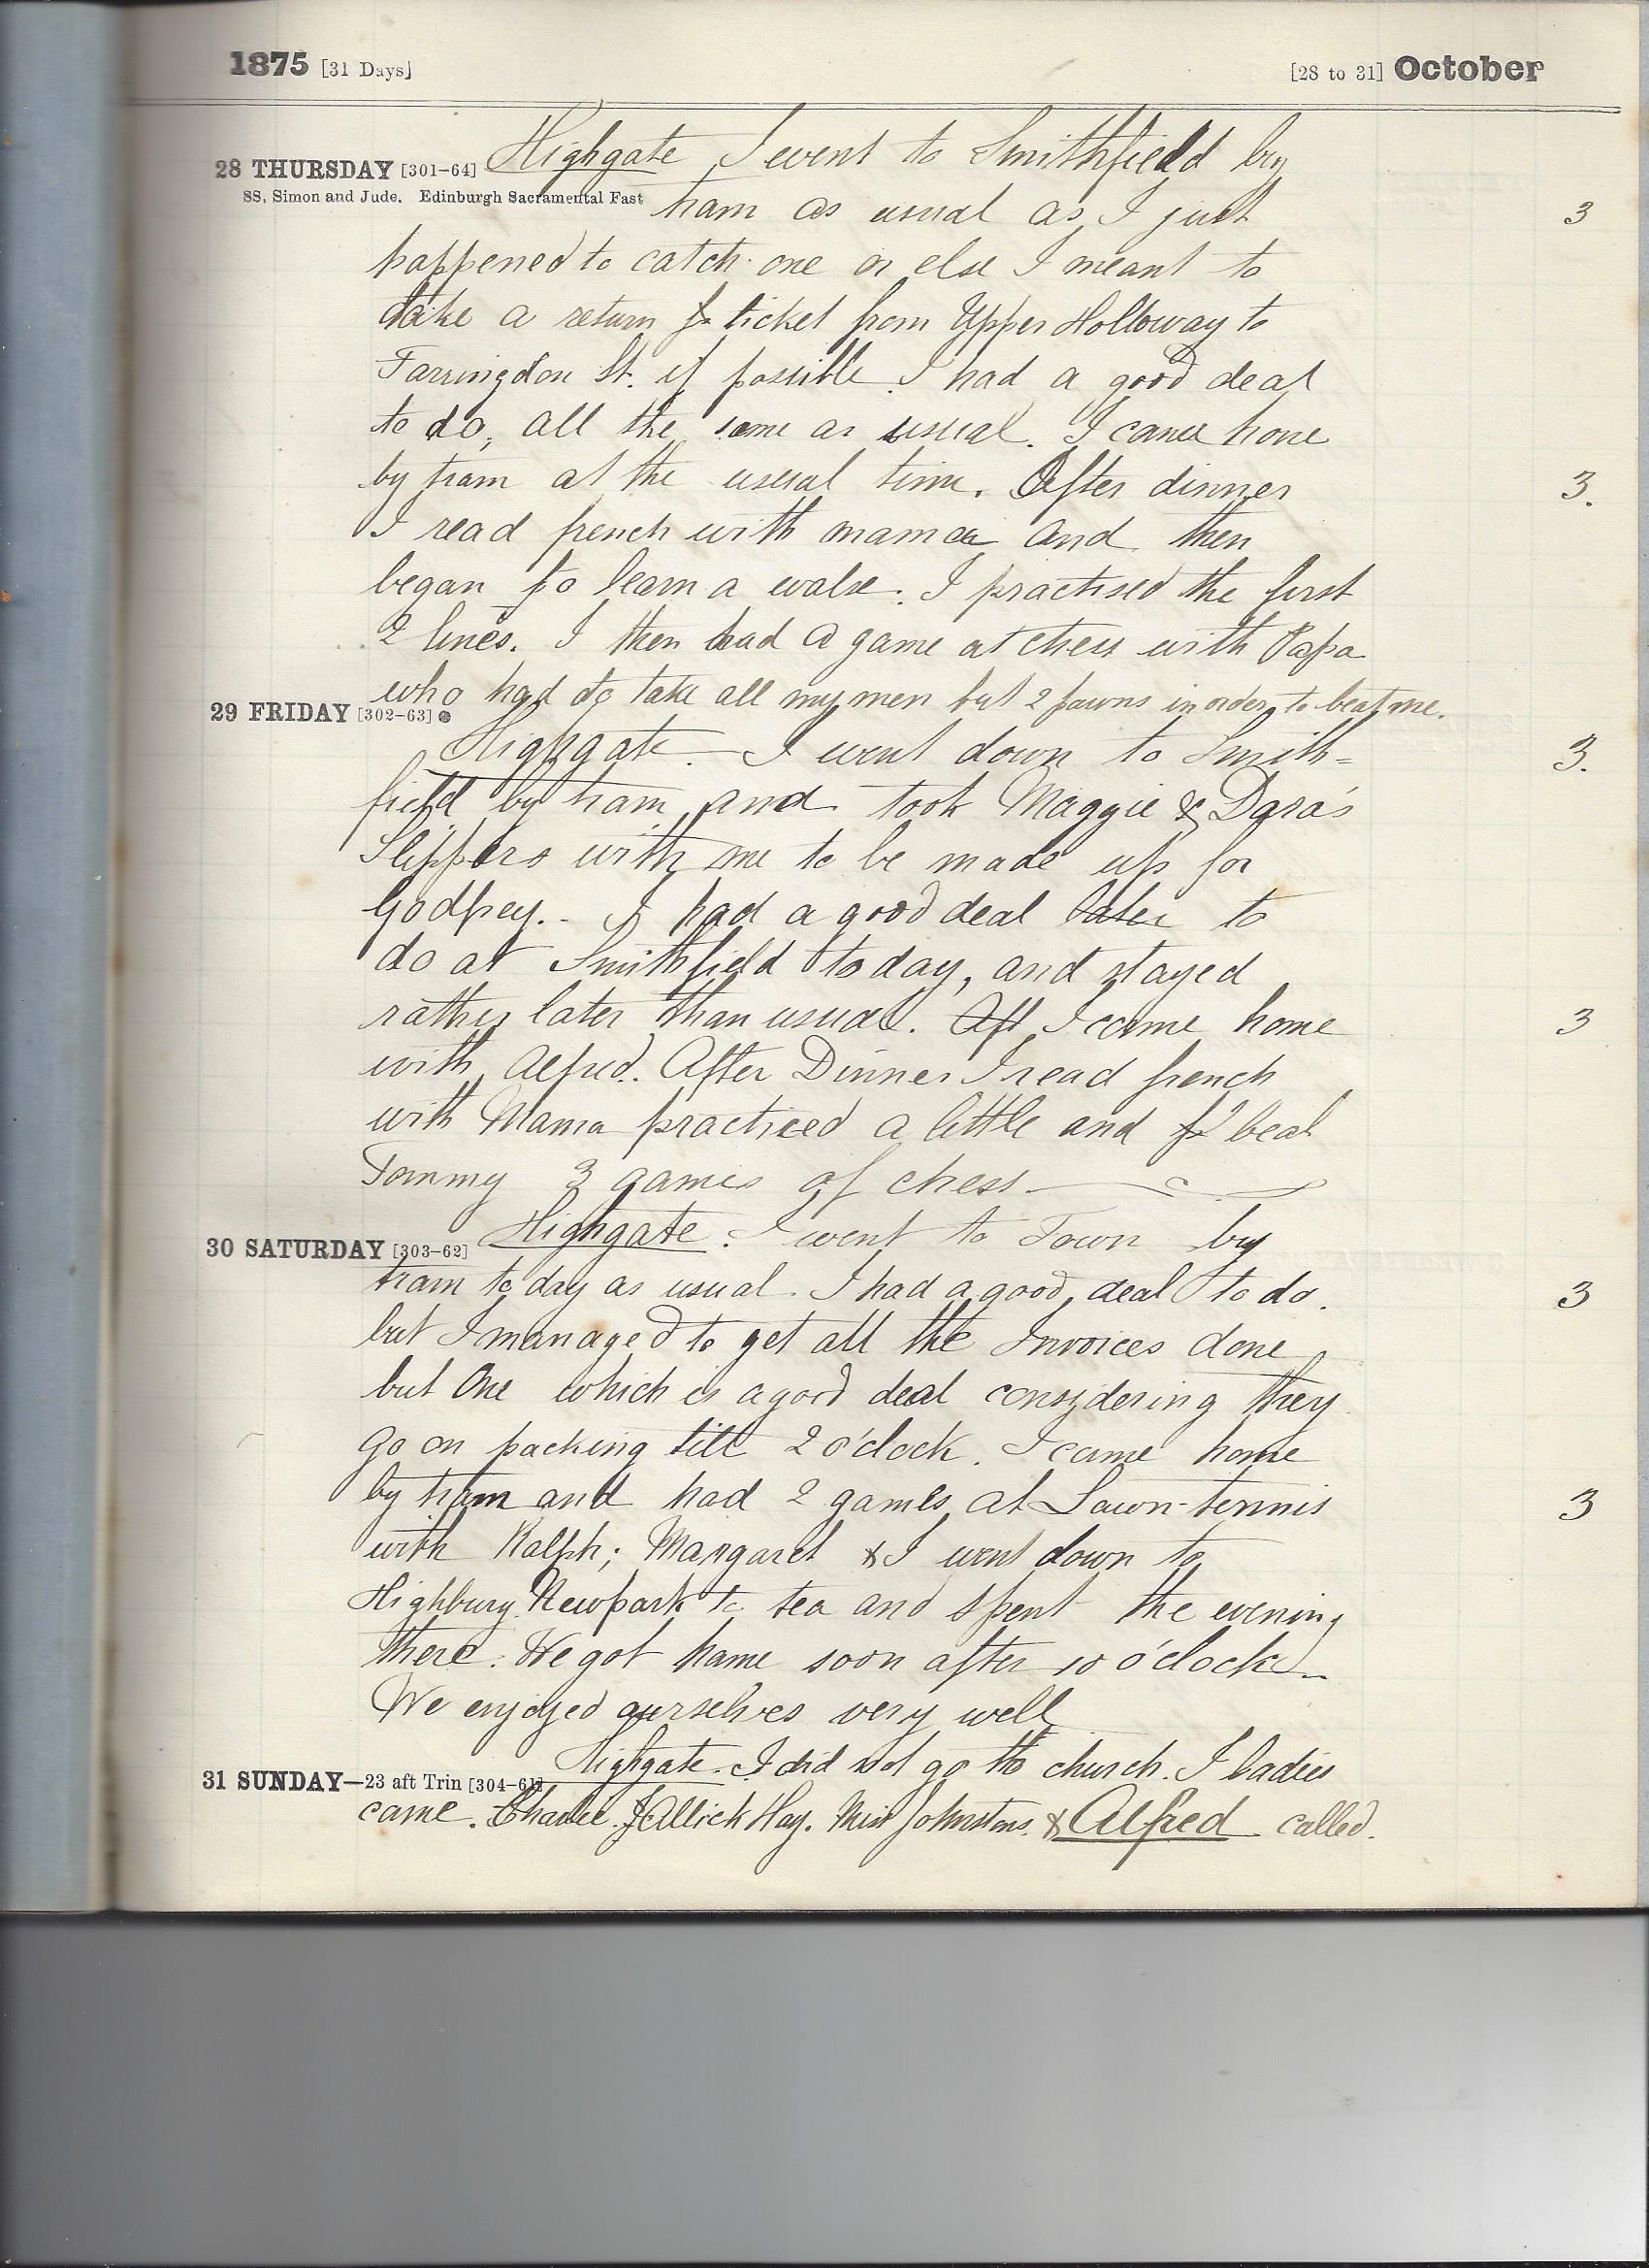 1875 [31 Days] [28 to 31] October
28 THURSDAY [301-64] Highgate I went to Smithfield by
SS. Simon and Jude. Edinburgh Sacramental Fast tram as usual as I just 3
happened to catch one or else I meant to
take a return ticket from Upper Holloway to
Farringdon St. if possible. I had a good deal
to do, all the same as usual. I came home
by tram at the usual time. After dinner 3.
I read french with mama and then
began to learn a valse. I practised the first
2 lines. I then had a game at chess with Papa
who had to take all my men but 2 pawns in order to beat me.
29 FRIDAY [302-63]
Highgate. I went down to Smith= 3.
field by tram and took Maggie & Dora's
Slippers with me to be made up for
Godfrey. - I had a good deal later to
do at Smithfield today, and stayed
rather later than usual. Aft I came home 3
with Alfred. After Dinner I read french
with Mama practiced a little and beat
Tommy 3 games of chess
30 SATURDAY [303-62] Highgate. I went to Town by
tram to day as usual. I had a good deal to do. 3
but I managed to get all the Invoices done
but One which is a good deal considering they
go on packing till 2 o'clock. I came home
by tram and had 2 games at Lawn-tennis 3
with Ralph; Margaret & I went down to
Highbury Newpark to tea and spent the evening
there. We got home soon after 10 o'clock
We enjoyed ourselves very well
31 SUNDAY—23 aft Trin [304-61] Highgate. I did not go to church. I ladies
came. Charlie. & Allick Hay. Miss Johnstons. & Alfred called.